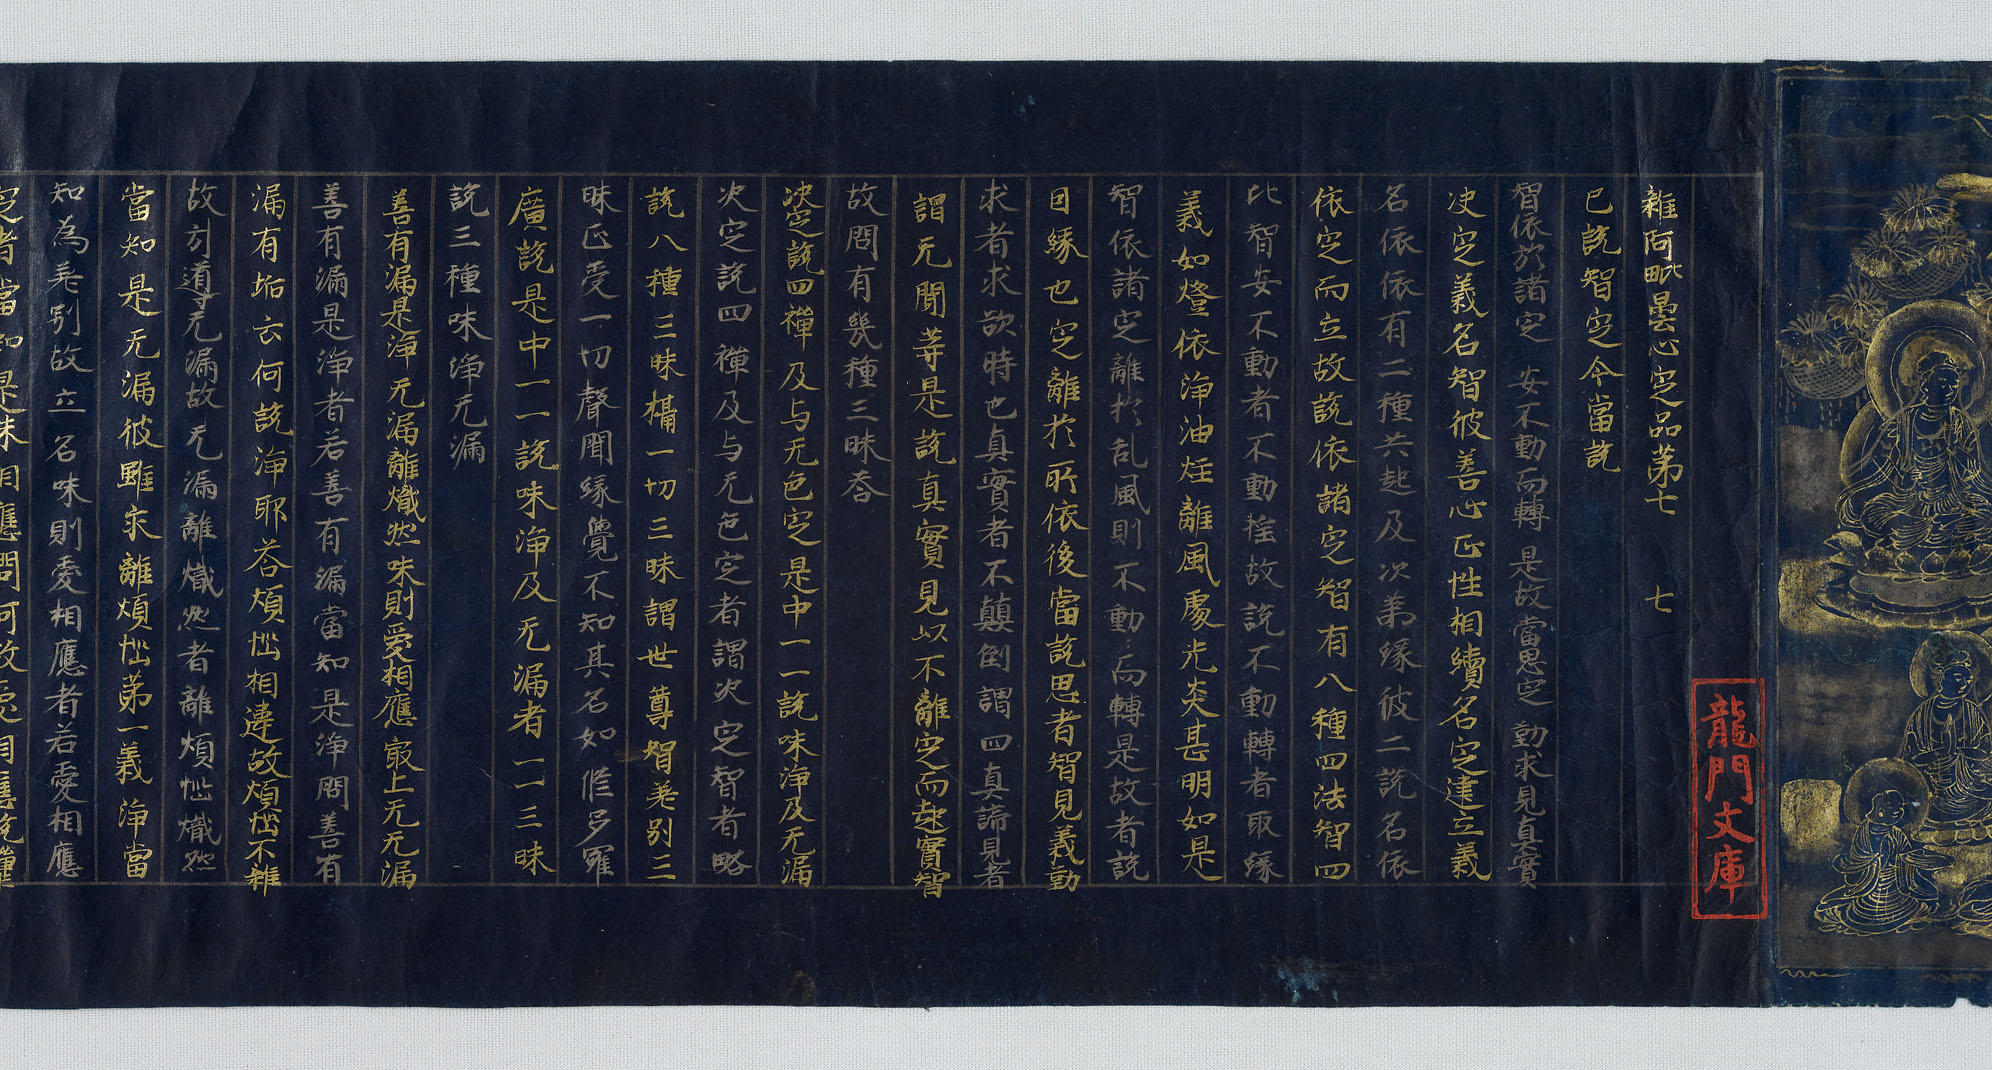 龍門文庫
雜阿毗曇心定品第七 七
已說智定今當說
智依於諸定 安不動而轉 是故當思定 勤求見真實
决定義名智彼善心正性相續名定建立義
名依依有二種共起及次第緣彼二說名依
依定而立故說依諸定智有八種四法智四
比智安不動者不動搖故說不動轉者取緣
義如燈依淨油炷離風處光炎甚明如是
智依諸定離於乱風則不動而轉是故者說
目緣也定離於所依後當說思者智見義勤
求者求欲時也真實者不顛倒謂四真諦見者
謂无間等是說真實見以不離定而起實智
故問有幾種三昧答
决定說四禪及与无色定是中一一說味淨及无漏
决定說四禪及与无色定者謂决定智者略
說八種三昧攝一切三昧謂世尊智差別三
昧正受一切聲聞緣覺不知其名如修多羅
廣說是中一一說味淨及无漏者一一三昧
說三種味淨无漏
善有漏是淨无漏離熾然味則愛相應寂上无无漏
善有漏是淨者若善有漏當知是淨問善有
漏有垢云何說淨耶答煩惱相違故煩惱不雜
故引導无漏故无漏離熾然者離煩惱熾然
當知是无漏彼雖求離煩惱第一義淨當
知為差別故立名味則愛相應者若愛相應
定者當知是味相應問何故愛相應說禪